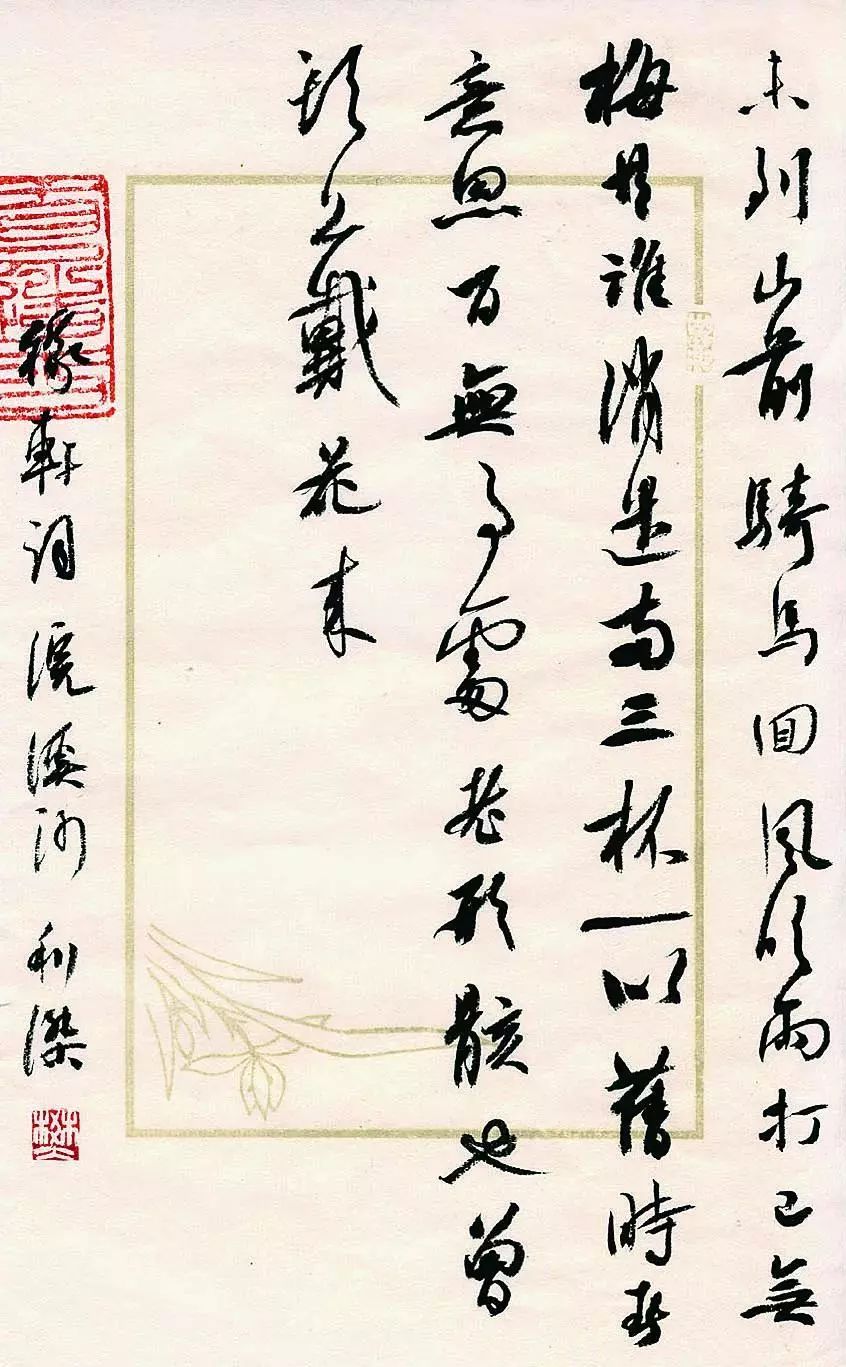 未到山前騎馬回風吹雨打已無
梅共誰消遣兩三杯一似舊時春
意思百無是處老形骸也曾
頭上戴花來
稼軒詞浣溪沙 利傑
樊